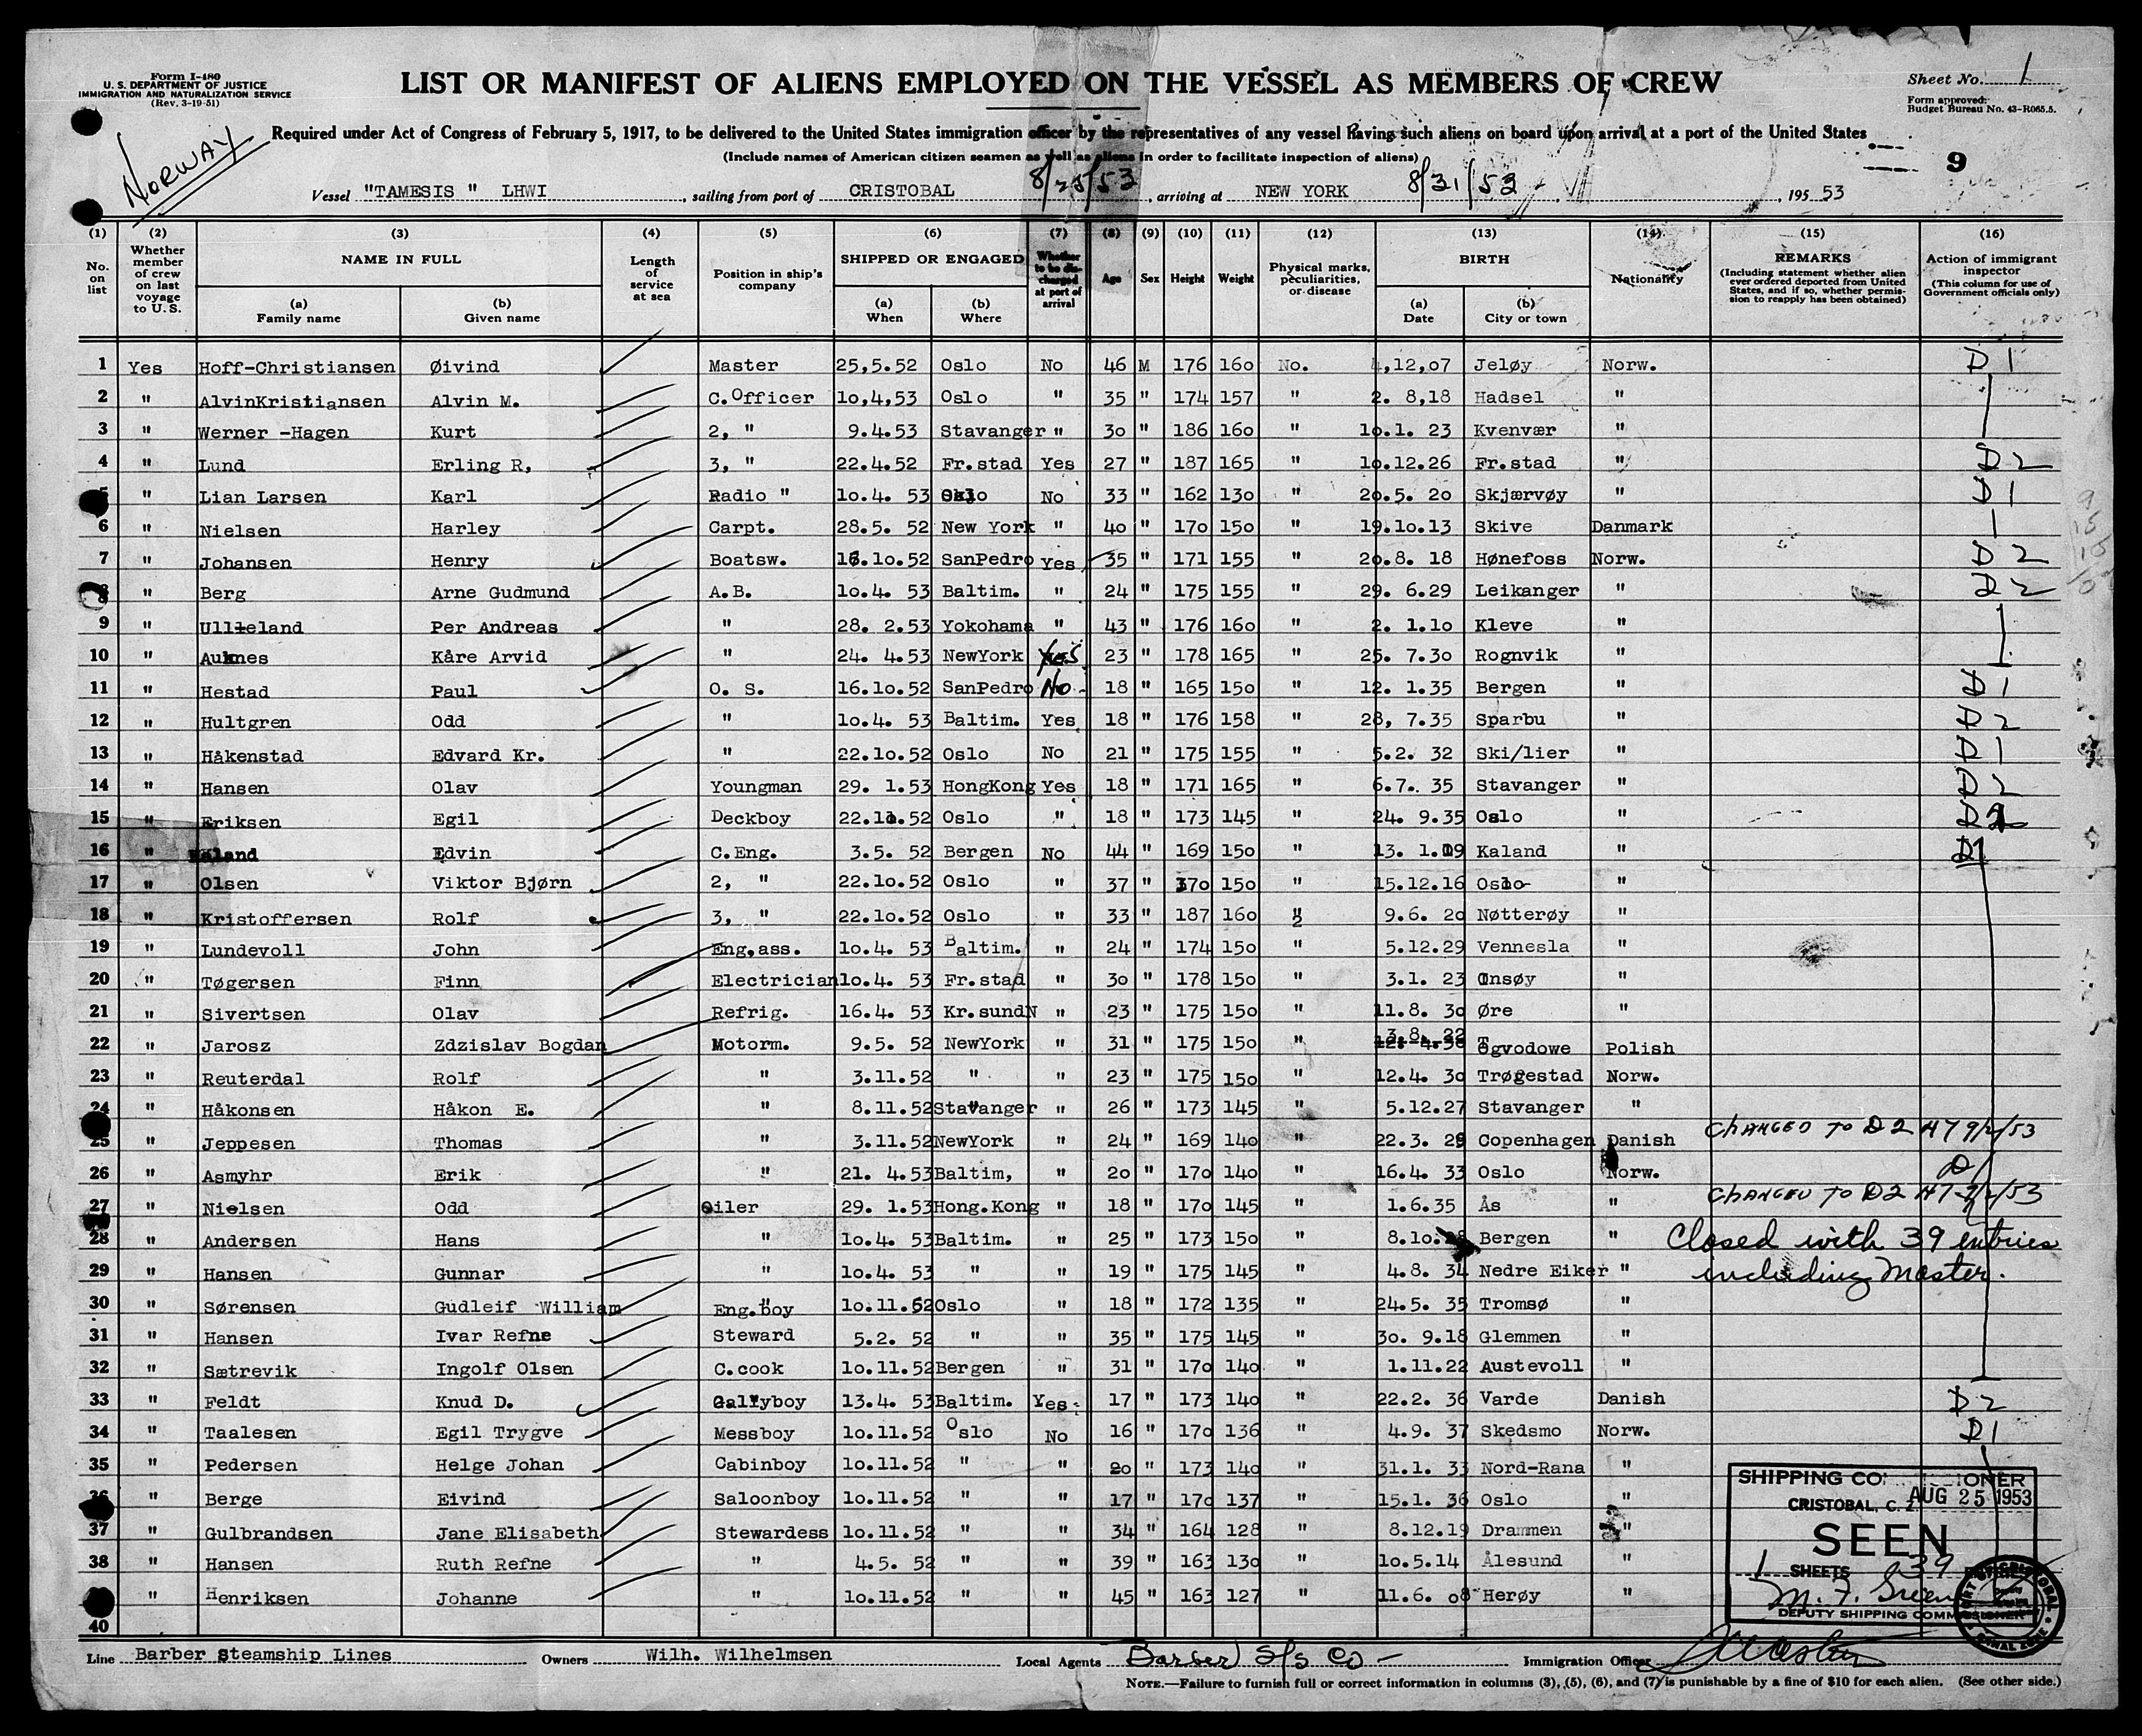 Form I-480
U. S. DEPARTMENT OF JUSTICE
IMMIGRATION AND NATURALIZATION SERVICE
(Rev. 3-19-51)
LIST OR MANIFEST OF ALIENS EMPLOYED ON THE VESSEL AS MEMBERS OF CREW
Sheet No. 1
Form approved:
Budget Bureau No. 43-R065.5.
NORWAY
Required under Act of Congress of February 5, 1917, to be delivered to the United States immigration officer by the representatives of any vessel having such aliens on board upon arrival at a port of the United States
(Include names of American citizen seamen as well as aliens in order to facilitate inspection of aliens)
9
Vessel "TAMESIS " LHWI , sailing from port of CRISTOBAL 8/25/53 , arriving at NEW YORK 8/31/53 , 195 53
(1) No. on list
(2) Whether member of crew on last voyage to U. S.
(3) NAME IN FULL (a) Family name (b) Given name
(4) Length of service at sea
(5) Position in ship's company
(6) SHIPPED OR ENGAGED (a) When (b) Where
(7) Whether to be discharged at port of arrival
(8) Age
(9) Sex
(10) Height
(11) Weight
(12) Physical marks, peculiarities, or disease
(13) BIRTH (a) Date (b) City or town
(14) Nationality
(15) REMARKS (Including statement whether alien ever ordered deported from United States, and if so, whether permission to reapply has been obtained)
(16) Action of immigrant inspector (This column for use of Government officials only)
1 Yes Hoff-Christiansen Øivind Master 25,5.52 Oslo No 46 M 176 160 No. 4,12,07 Jeløy Norw. D 1
2 " AlvinKristiansen Alvin M. C.Officer 10,4,53 Oslo " 35 " 174 157 " 2. 8,18 Hadsel "
3 " Werner -Hagen Kurt 2, " 9.4.53 Stavanger " 30 " 186 160 " 10.1. 23 Kvenvær "
4 " Lund Erling R, 3, " 22.4.52 Fr.stad Yes 27 " 187 165 " 10.12.26 Fr.stad " D 2
5 " Lian Larsen Karl Radio " 10.4. 53 Oslo No 33 " 162 130 " 20.5. 20 Skjærvøy " D 1
6 " Nielsen Harley Carpt. 28.5. 52 New York " 40 " 170 150 " 19.10.13 Skive Danmark
7 " Johansen Henry Boatsw. 16.10.52 SanPedro Yes 35 " 171 155 " 20.8. 18 Hønefoss Norw. D 2
8 " Berg Arne Gudmund A.B. 10.4. 53 Baltim. " 24 " 175 155 " 29. 6.29 Leikanger " D 2
9 " Ulleland Per Andreas " 28. 2.53 Yokohama " 43 " 176 160 " 2. 1.10 Kleve "
10 " Auknes Kåre Arvid " 24. 4.53 NewYork Yes 23 " 178 165 " 25. 7.30 Rognvik "
11 " Hestad Paul O. S. 16.10.52 SanPedro No 18 " 165 150 " 12. 1.35 Bergen " D 1
12 " Hultgren Odd " 10.4. 53 Baltim. Yes 18 " 176 158 " 28, 7.35 Sparbu " D 2
13 " Håkenstad Edvard Kr. " 22.10.52 Oslo No 21 " 175 155 " 5.2. 32 Ski/lier " D 1
14 " Hansen Olav Youngman 29. 1.53 HongKong Yes 18 " 171 165 " 6.7. 35 Stavanger " D 2
15 " Eriksen Egil Deckboy 22.10.52 Oslo " 18 " 173 145 " 24. 9.35 Oslo " D 2
16 " Kaland Edvin C.Eng. 3.5. 52 Bergen No 44 " 169 150 " 13. 1.09 Kaland " D1
17 " Olsen Viktor Bjørn 2, " 22.10.52 Oslo " 37 " 170 150 " 15.12.16 Oslo "
18 " Kristoffersen Rolf 3, " 22.10.52 Oslo " 33 " 187 160 " 9.6. 20 Nøtterøy "
19 " Lundevoll John Eng.ass. 10.4. 53 Baltim. " 24 " 174 150 " 5.12.29 Vennesla "
20 " Tøgersen Finn Electrician 10.4. 53 Fr.stad " 30 " 178 150 " 3.1. 23 Onsøy "
21 " Sivertsen Olav Refrig. 16.4. 53 Kr.sundN " 23 " 175 150 " 11.8. 30 Øre "
22 " Jarosz Zdzislav Bogdan Motorm. 9.5. 52 NewYork " 31 " 175 150 " 3.8. 22 Polish
23 " Reuterdal Rolf " 3.11.52 " " 23 " 175 150 " 12.4. 30 Trøgestad Norw.
24 " Håkonsen Håkon E. " 8.11.52 Stavanger " 26 " 173 145 " 5.12.27 Stavanger "
25 " Jeppesen Thomas " 3.11.52 NewYork " 24 " 169 140 " 22.3. 29 Copenhagen Danish CHANGED TO D2 H7 9/2/53
26 " Asmyhr Erik " 21. 4.53 Baltim, " 20 " 170 140 " 16.4. 33 Oslo Norw.
27 " Nielsen Odd Oiler 29. 1.53 Hong.Kong " 18 " 170 145 " 1.6.35 Ås " CHANGED TO D2 H7 9/2/53
28 " Andersen Hans " 10.4. 53 Baltim. " 25 " 173 150 " 8.10.28 Bergen " Closed with 39 entries
29 " Hansen Gunnar " 10.4. 53 " " 19 " 175 145 " 4.8. 34 Nedre Eiker " including Master.
30 " Sørensen Gudleif William Eng.boy 10.11.52 Oslo " 18 " 172 135 " 24.5. 35 Tromsø "
31 " Hansen Ivar Refne Steward 5.2. 52 " " 35 " 175 145 " 30. 9.18 Glemmen "
32 " Sætrevik Ingolf Olsen C.cook 10.11.52 Bergen " 31 " 170 140 " 1.11.22 Austevoll "
33 " Feldt Knud D. Gallyboy 13.4. 53 Baltim. Yes 17 " 173 140 " 22.2. 36 Varde Danish D 2
34 " Taalesen Egil Trygve Messboy 10.11.52 Oslo No 16 " 170 136 " 4.9. 37 Skedsmo Norw. D1
35 " Pedersen Helge Johan Cabinboy 10.11.52 " " 20 " 173 140 " 31.1. 33 Nord-Rana "
36 " Berge Eivind Saloonboy 10.11.52 " " 17 " 170 137 " 15.1. 36 Oslo "
37 " Gulbrandsen Jane Elisabeth Stewardess 10.11.52 " " 34 " 164 128 " 8.12.19 Drammen "
38 " Hansen Ruth Refne " 4.5. 52 " " 39 " 163 130 " 10.5.14 Ålesund "
" Henriksen Johanne " 10.11.52 " " 45 " 163 127 " 11.6. 08 Herøy "
40
SHIPPING COMMISSIONER
CRISTOBAL, C. Z. AUG 25 1953
SEEN
1 SHEETS 39
DEPUTY SHIPPING COMMISSIONER
Line Barber Steamship Lines Owners Wilh. Wilhelmsen Local Agents Barber S/S Co - Immigration Officer
NOTE.—Failure to furnish full or correct information in columns (3), (5), (6), and (7) is punishable by a fine of $10 for each alien. (See other side.)